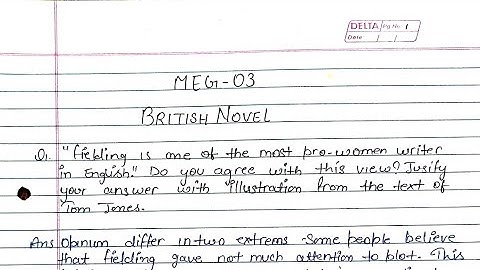 DELTA Pg No. 1
Date / /
MEG-03
BRITISH NOVEL
Q. "Fielding is one of the most pro-women writer
in English." Do you agree with this view? Jusify
your answer with illustration from the text of
Tom Jones.
Ans Opinum differ in two extrems some people believe
that fielding gave not much attention to plot. This